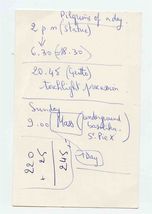 Pilgrims of a day
2 p m (statue)
6.30 - 18.30)
20.45 (Grotto)
torchlight procession
Sunday
9.00 Mass (underground
basilica
St Pie X
1 Day
220
+ 25
245